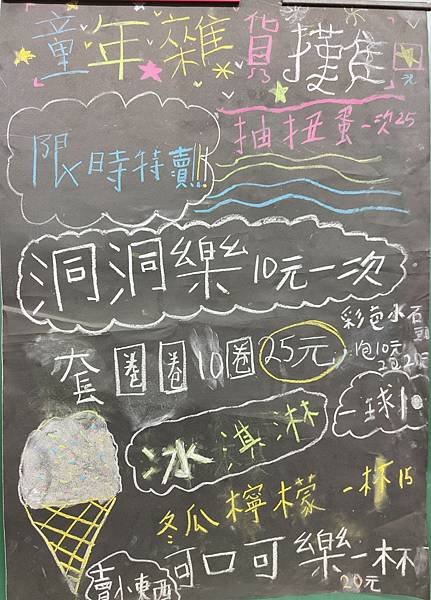 童年雜貨攤
抽扭蛋一次25
限時特賣!!
洞洞樂10元一次
彩色水石
1包10元
套圈圈10圈25元
一球1
冰淇淋
冬瓜檸檬一杯15
可口可樂一杯
20元
賣小東西